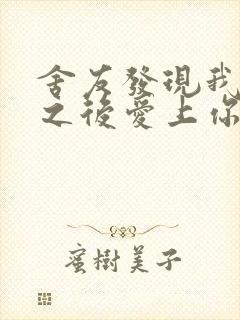 舍友發現我
之後愛上你
蜜樹美子